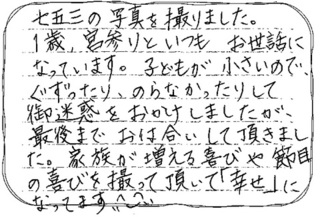 七五三の写真を撮りました。
1歳,宮参りといつも お世話に
なっています。子どもが小さいので、
ぐずったり、のらなかったりして
御迷惑をおかけしましたが、
最後までおは合いして頂きまし
た。家族が増える喜びや節目
の喜びを撮って頂いて「幸せ」に
なってます^^